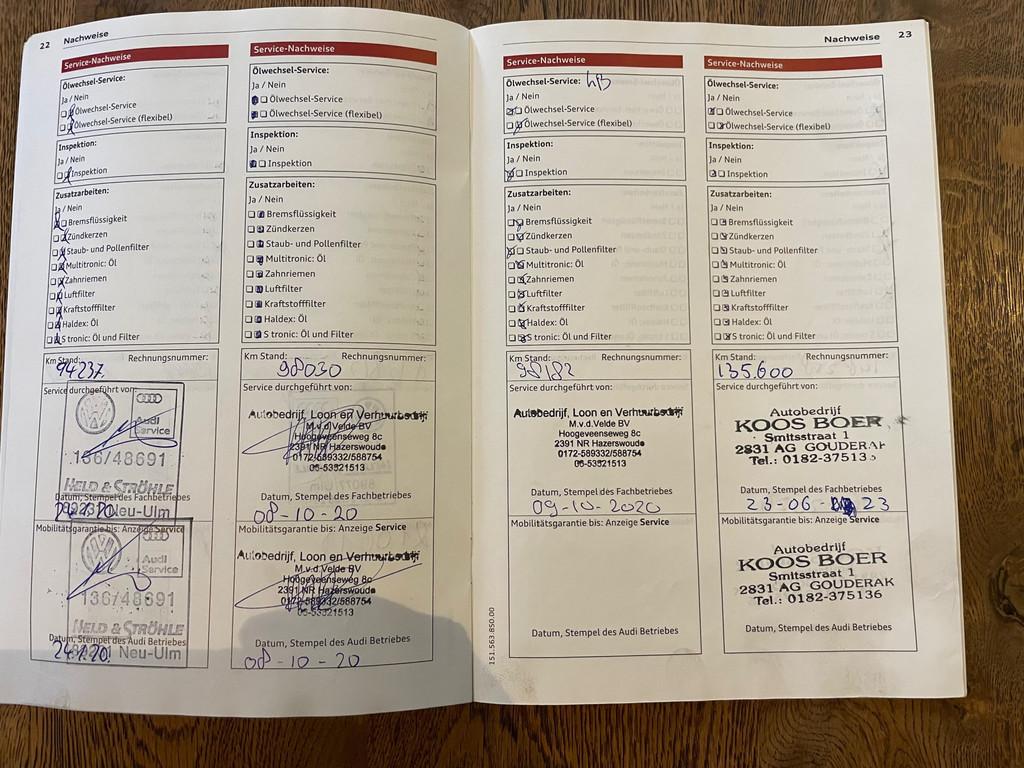 22 Nachweise
Service-Nachweise
Ölwechsel-Service:
Ja / Nein
Ölwechsel-Service
Ölwechsel-Service (flexibel)
Inspektion:
Ja / Nein
Inspektion
Zusatzarbeiten:
Ja / Nein
Bremsflüssigkeit
Zündkerzen
Staub- und Pollenfilter
Multitronic: Öl
Zahnriemen
Luftfilter
Kraftstofffilter
Haldex: Öl
S tronic: Öl und Filter
Km Stand: Rechnungsnummer:
94237
Service durchgeführt von:
Audi
Service
136/48691
HELD & STRÖHLE
Datum, Stempel des Fachbetriebes
Neu-Ulm
Mobilitätsgarantie bis: Anzeige Service
Audi
Service
136/48691
HELD & STRÖHLE
Datum, Stempel des Audi Betriebes
Neu-Ulm
Service-Nachweise
Ölwechsel-Service:
Ja / Nein
Ölwechsel-Service
Ölwechsel-Service (flexibel)
Inspektion:
Ja / Nein
Inspektion
Zusatzarbeiten:
Ja / Nein
Bremsflüssigkeit
Zündkerzen
Staub- und Pollenfilter
Multitronic: Öl
Zahnriemen
Luftfilter
Kraftstofffilter
Haldex: Öl
S tronic: Öl und Filter
Km Stand: Rechnungsnummer:
98030
Service durchgeführt von:
Autobedrijf, Loon en Verhuurbedrijf
M.v.d.Velde BV
Hoogeveenseweg 8c
2391 NR Hazerswoude
0172-589332/588754
06-53321513
Datum, Stempel des Fachbetriebes
08-10-20
Mobilitätsgarantie bis: Anzeige Service
Autobedrijf, Loon en Verhuurbedrijf
M.v.d.Velde BV
Hoogeveenseweg 8c
2391 NR Hazerswoude
0172-589332/588754
06-53321513
Datum, Stempel des Audi Betriebes
08-10-20
Nachweise 23
Service-Nachweise
Ölwechsel-Service:
Ja / Nein
Ölwechsel-Service
Ölwechsel-Service (flexibel)
Inspektion:
Ja / Nein
Inspektion
Zusatzarbeiten:
Ja / Nein
Bremsflüssigkeit
Zündkerzen
Staub- und Pollenfilter
Multitronic: Öl
Zahnriemen
Luftfilter
Kraftstofffilter
Haldex: Öl
S tronic: Öl und Filter
Km Stand: Rechnungsnummer:
98182
Service durchgeführt von:
Autobedrijf, Loon en Verhuurbedrijf
M.v.d.Velde BV
Hoogeveenseweg 8c
2391 NR Hazerswoude
0172-589332/588754
06-53321513
Datum, Stempel des Fachbetriebes
09-10-2020
Mobilitätsgarantie bis: Anzeige Service
Datum, Stempel des Audi Betriebes
151.563.850.00
Service-Nachweise
Ölwechsel-Service:
Ja / Nein
Ölwechsel-Service
Ölwechsel-Service (flexibel)
Inspektion:
Ja / Nein
Inspektion
Zusatzarbeiten:
Ja / Nein
Bremsflüssigkeit
Zündkerzen
Staub- und Pollenfilter
Multitronic: Öl
Zahnriemen
Luftfilter
Kraftstofffilter
Haldex: Öl
S tronic: Öl und Filter
Km Stand: Rechnungsnummer:
135.600
Service durchgeführt von:
Autobedrijf
KOOS BOER
Smitsstraat 1
2831 AG GOUDERAK
Tel.: 0182-37513
Datum, Stempel des Fachbetriebes
23-06- 23
Mobilitätsgarantie bis: Anzeige Service
Autobedrijf
KOOS BOER
Smitsstraat 1
2831 AG GOUDERAK
Tel.: 0182-375136
Datum, Stempel des Audi Betriebes